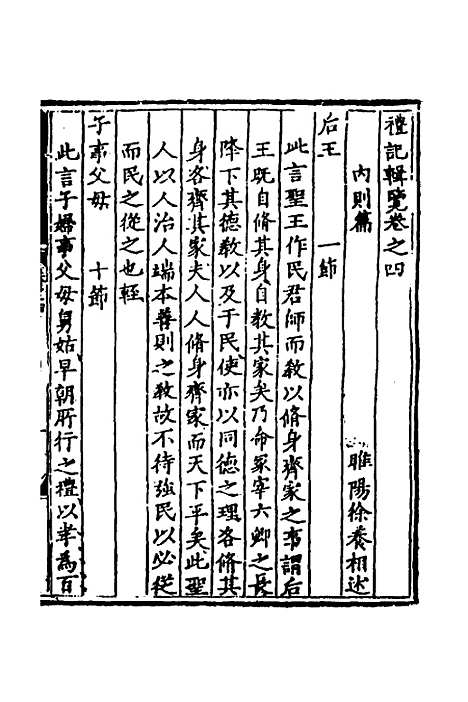 禮記輯覽卷之四
內則篇 睢陽徐養相述
后王 一節
此言聖王作民君師而教以脩身齊家之事謂后
王既自脩其身自教其家矣乃命冢宰六卿之長
降下其德教以及于民使亦以同德之理各脩其
身各齊其家夫人人脩身齊家而天下平矣此聖
人以人治人端本善則之教故不待強民以必從
而民之從之也輕
子事父母 十節
此言子婦事父母舅姑早朝所行之禮以孝為百